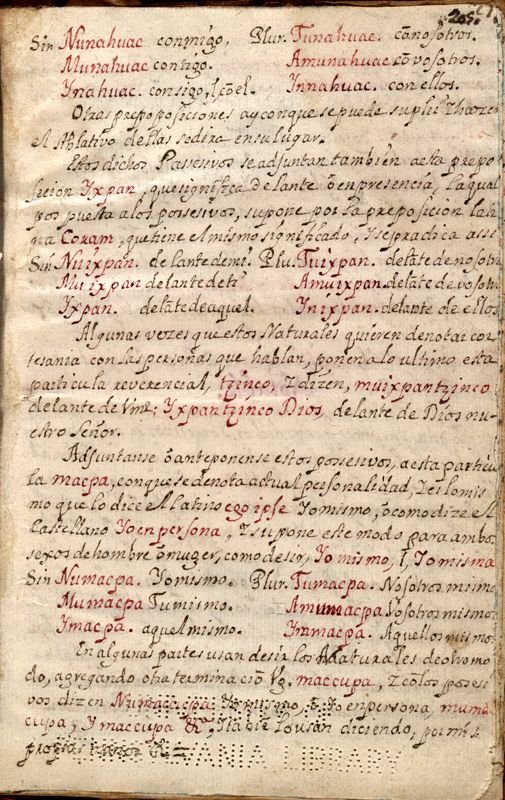 205.
Sin Nunahuac conmigo, Plur. Tunahuac. cõnosotros.
Munahuac contigo. Amunahuac cõvosotros.
Ynahuac. consigo, l, cõel. Ynnahuac. con ellos.
Otras preposiciones ay conque se puede suplir, I hazer
el Ablativo dellas se dira en su lugar.
Estos dichos Possesivos se adjuntan tambien a esta prepo
sicion Yxpan, que significa delante ò en presencia, la qual
pospuesta a los possesivos, supone por la preposicion lati
na Coram, que tiene el mismo significado, I se practica assi
Sin Nuixpan. delante de mi. Plu. Tuixpan. delãte de nosotro
Muixpan delante de ti Amuixpan. delãte de vosotro
Yxpan. delãte de aquel. Ynixpan. delante de ellos
Algunas vezes que estos Naturales quieren denotar cor
tesania con las personas que hablan, ponen a lo ultimo esta
particula reverencial, tzinco, I dizen, muixpantzinco
delante de Vmd; Yxpantzinco Dios, delante de Dios nu
estro Señor.
Adjuntanse ò anteponense estos possesivos, a esta particu
la macpa, conque se denota actual personalidad, I es lo mis
mo que lo dice el latino ego ipse Yo mismo, ò como dize el
Castellano Yo en persona, I supone este modo para ambos
sexos de hombre ò muger, como desir, Yo mismo, l, Yo misma
Sin Numacpa. Yo mismo. Plur. Tumacpa. Nosotros mismo
Mumacpa Tu mismo. Amumacpa Vosotros mismos
Ymacpa. aquel mismo. Ynmacpa. Aquellos mismo
En algunas partes usan desir los Naturales de otro mo
do, agregando otra terminaciõ Vg. maccupa, I cõ los posesi
vos dizen Numaccupa. Yo mismo, ò Yo en persona, mumac
cupa, Ymaccupa &c. I tãbiẽ lo usan diciendo, por mis
propias manos &c.
VANIA LIBRARY